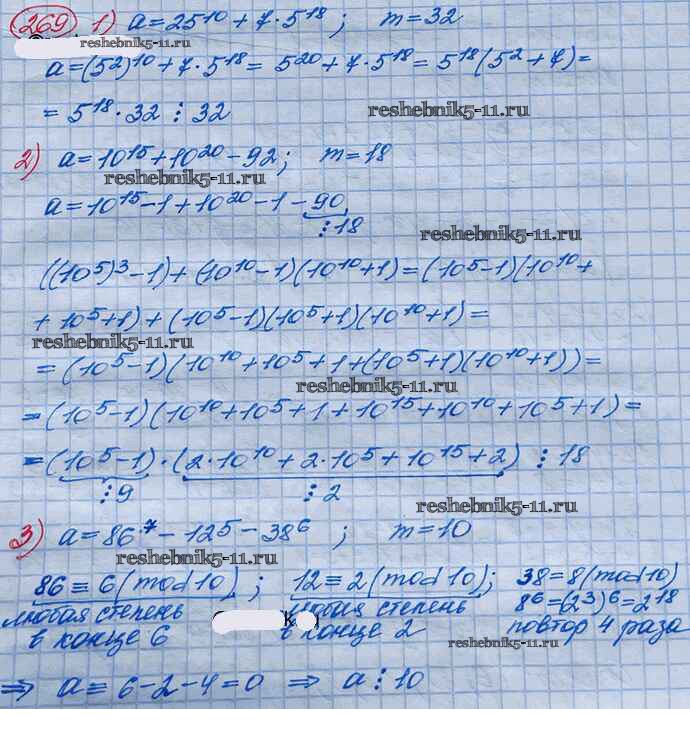 269 1) a = 25¹⁰ + 7·5¹⁸ ; m = 32
reshebnik5-11.ru
a = (5²)¹⁰ + 7·5¹⁸ = 5²⁰ + 7·5¹⁸ = 5¹⁸(5² + 7) =
= 5¹⁸·32 ⋮ 32
reshebnik5-11.ru
2) a = 10¹⁵ + 10²⁰ - 92; m = 18
reshebnik5-11.ru
a = 10¹⁵ - 1 + 10²⁰ - 1 - 90
⋮ 18
reshebnik5-11.ru
((10⁵)³ - 1) + (10¹⁰ - 1)(10¹⁰ + 1) = (10⁵ - 1)(10¹⁰ +
+ 10⁵ + 1) + (10⁵ - 1)(10⁵ + 1)(10¹⁰ + 1) =
reshebnik5-11.ru
= (10⁵ - 1)(10¹⁰ + 10⁵ + 1 + (10⁵ + 1)(10¹⁰ + 1)) =
reshebnik5-11.ru
= (10⁵ - 1)(10¹⁰ + 10⁵ + 1 + 10¹⁵ + 10¹⁰ + 10⁵ + 1) =
= (10⁵ - 1)·(2·10¹⁰ + 2·10⁵ + 10¹⁵ + 2) ⋮ 18
⋮ 9 ⋮ 2
reshebnik5-11.ru
3) a = 86⁷ - 12⁵ - 38⁶ ; m = 10
reshebnik5-11.ru
86 ≡ 6 (mod 10) ; 12 ≡ 2 (mod 10); 38 = 8 (mod 10)
любая степень любая степень 8⁶ = (2³)⁶ = 2¹⁸
в конце 6 в конце 2 повтор 4 раза
reshebnik5-11.ru
⇒ a ≡ 6 - 2 - 4 = 0 ⇒ a ⋮ 10